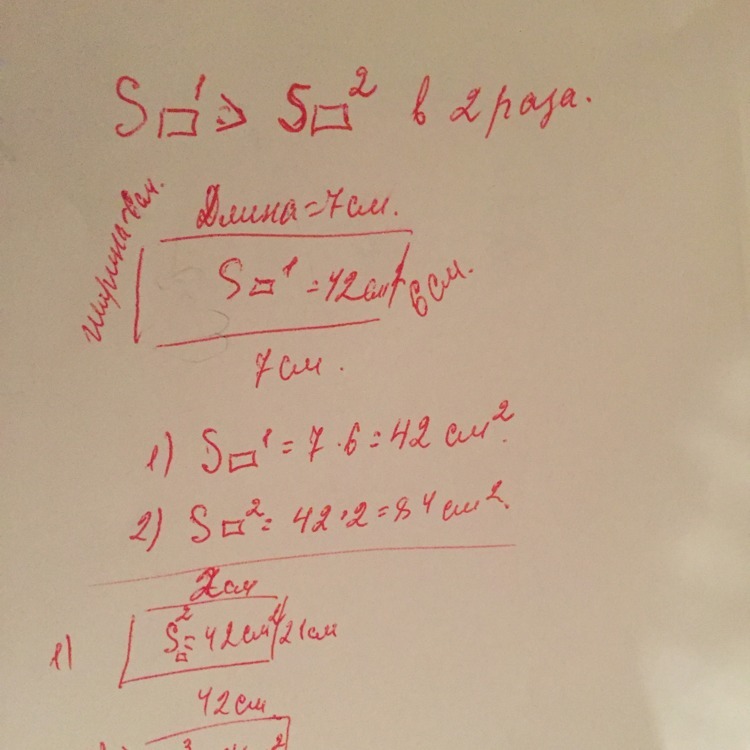 S▭¹ > S▭² в 2 раза.
Длина = 7 см.
ширина
S▭¹ = 42 см²
6 см.
7 см.
1) S▭¹ = 7 · 6 = 42 см².
2) S▭² = 42 · 2 = 84 см².
2 см
1) S▭² = 42 см² 21 см
42 см